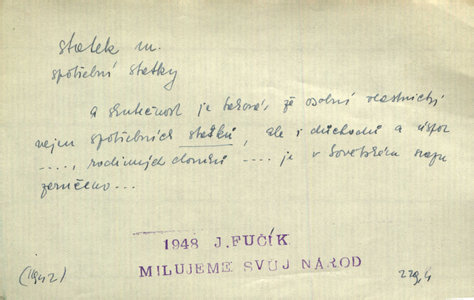 statek m.
spotřební statky
a skutečnost je taková, že osobní vlastnictví
nejen spotřebních statků, ale i důchodů a úspor
...., rodinných domků .... je v Sovětském svazu
zaručeno...
1948 J.FUČÍK
MILUJEME SVŮJ NÁROD
(1942)
229,4